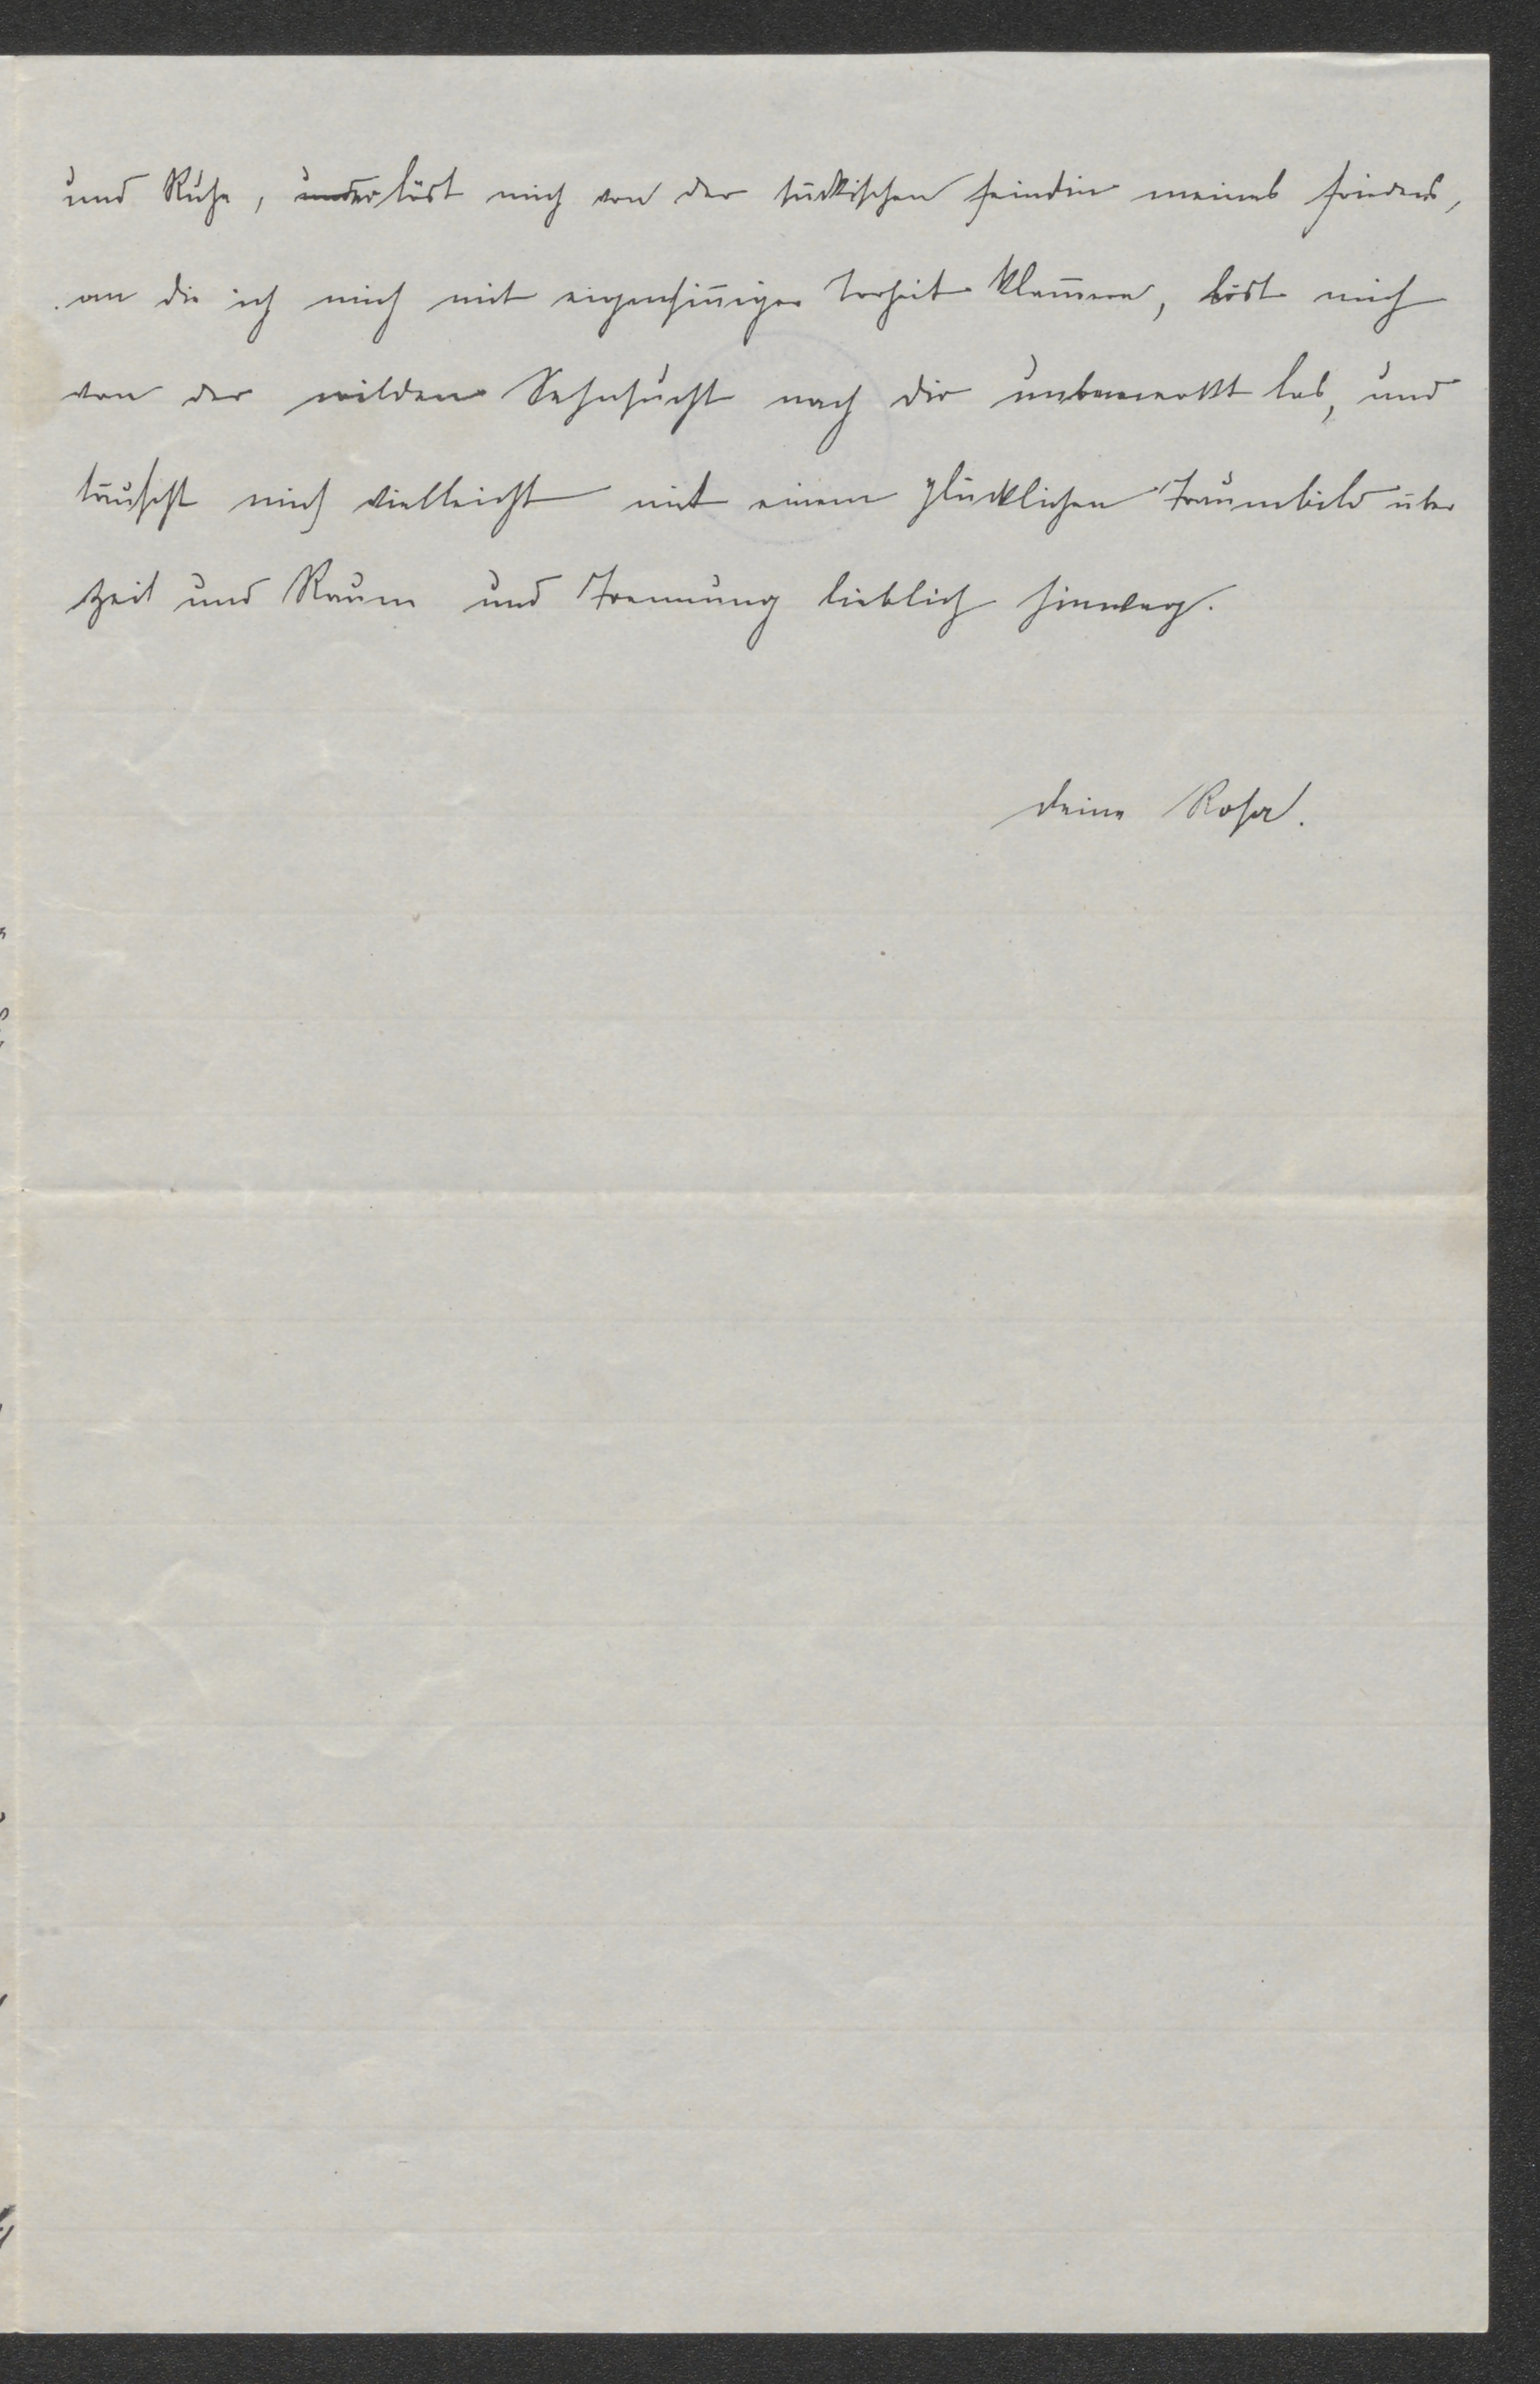 und Ruhe, erlöst mich von der tückischen Feindin meines Friedens,
an die ich mich mit eigensiniger Torheit klamere, löst mich
von der wilden Sehnsucht nach dir unbemerkt los, und
täuscht mich vielleicht mit einem glücklichen Traumbild über
Zeit und Raum und Trennung lieblich hinweg.
Deine Rosa.